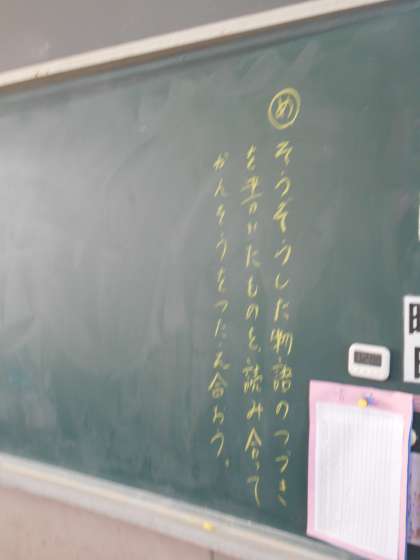 め
そうぞうした物語のつづき
を書いたものを、読み合って
かんそうをつたえ合おう。